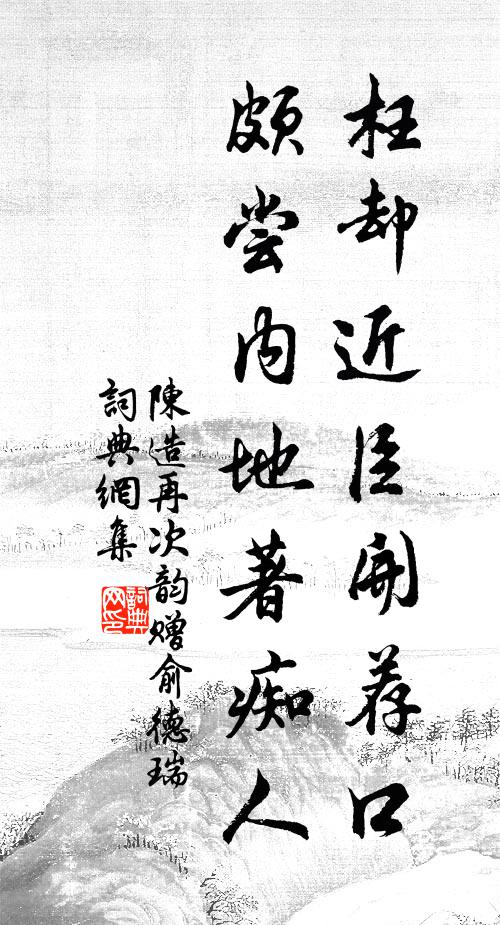 枉却近臣開荐口
頗尝内地著痴人
陳造再次韵贈俞德瑞
詞典網集
詞典网印